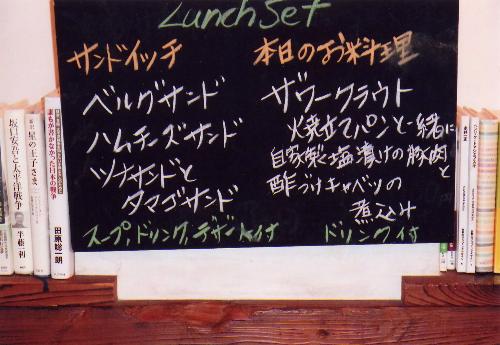 Lunch Set
サンドイッチ
ベルグサンド
ハムチーズサンド
ツナサンドと
タマゴサンド
スープ,ドリンク,デザート付
本日のお料理
ザワークラウト
焼立てパンと一緒に
自家製塩漬けの豚肉と
酢づけキャベツの
煮込み
ドリンク付
坂口安吾と太平洋戦争
半藤一利
星の王子さま
誰も書かなかった日本の戦争
田原総一朗